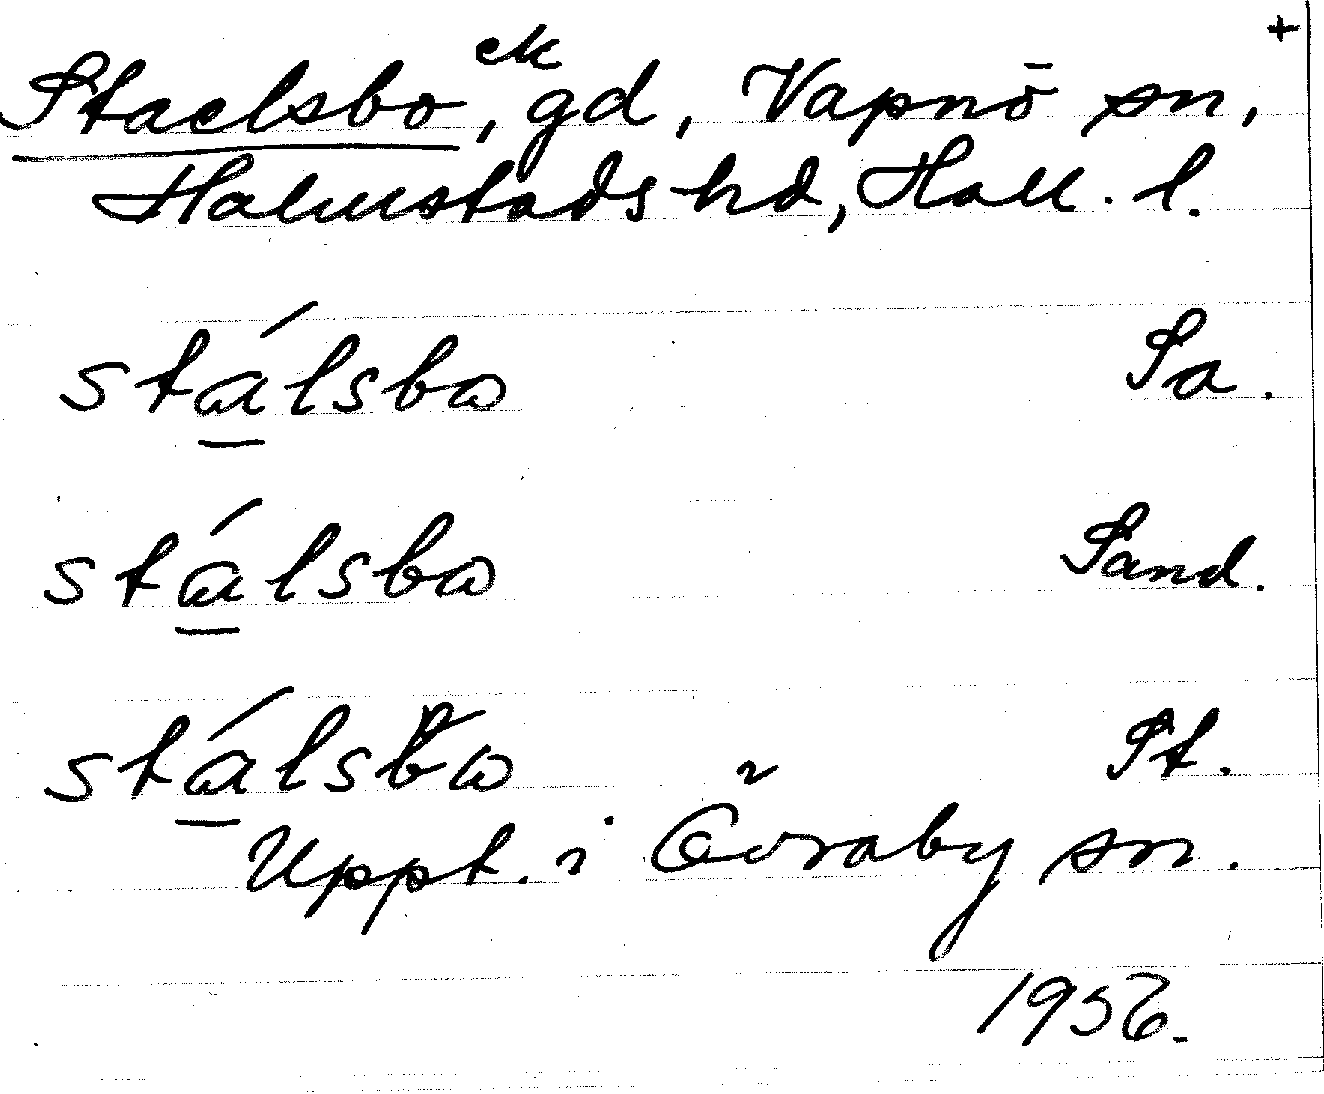 +
Staelsbo, ek gd, Vapnö sn,
Halmstads hd, Hall. l.
stálsbω Sa.
stálsbω Sand.
stálsbω St.
Uppt. i Övraby sn.
1956.